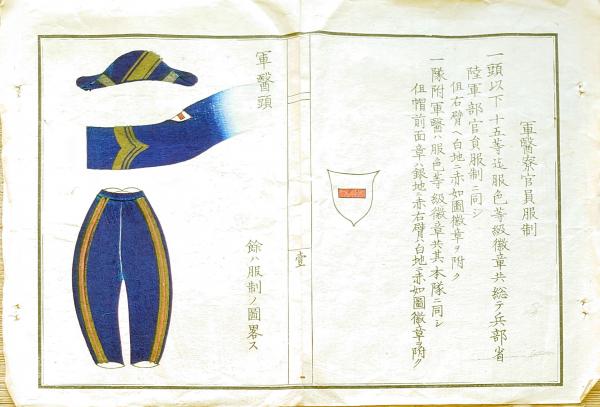 軍醫寮官員服制
一頭以下十五等迄服色等級徽章共総テ兵部省
陸軍部官員服制ニ同シ
但右臂ヘ白地ニ赤如圖徽章ヲ附ク
一隊附軍醫ハ服色等級徽章共其本隊ニ同シ
但帽前面章ハ銀地ニ赤右臂ハ白地ニ赤如圖徽章ヲ附ク
壹
軍醫頭
餘ハ服制ノ圖畧ス